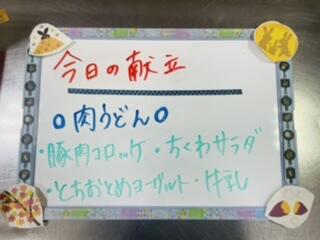 今日の献立
○肉うどん○
・豚肉コロッケ・ちくわサラダ
・とちおとめヨーグルト・牛乳